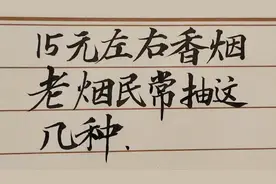 15元左右香烟
老烟民常抽这
几种、